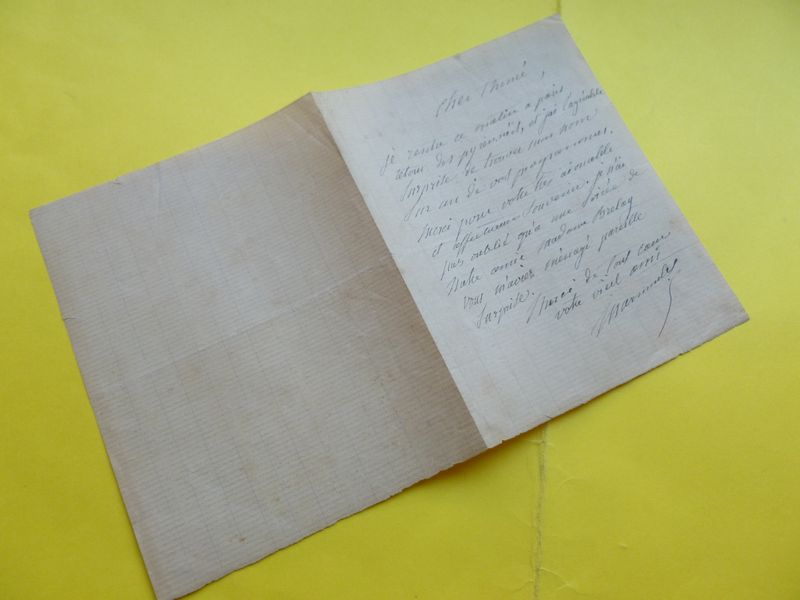 Cher Thomé,
je rentre ce matin a paris
retour des pyrennées, et j'ai l'agréable
surprise de trouver mon nom
sur un de vos programmes.
merci pour votre très aimable
et affectueux souvenir. je n'ai
pas oublié qu'a une soirée de
Notre amie madame
vous m'aviez ménagé pareille
surprise. Merci de tout cœur
votre vieil ami